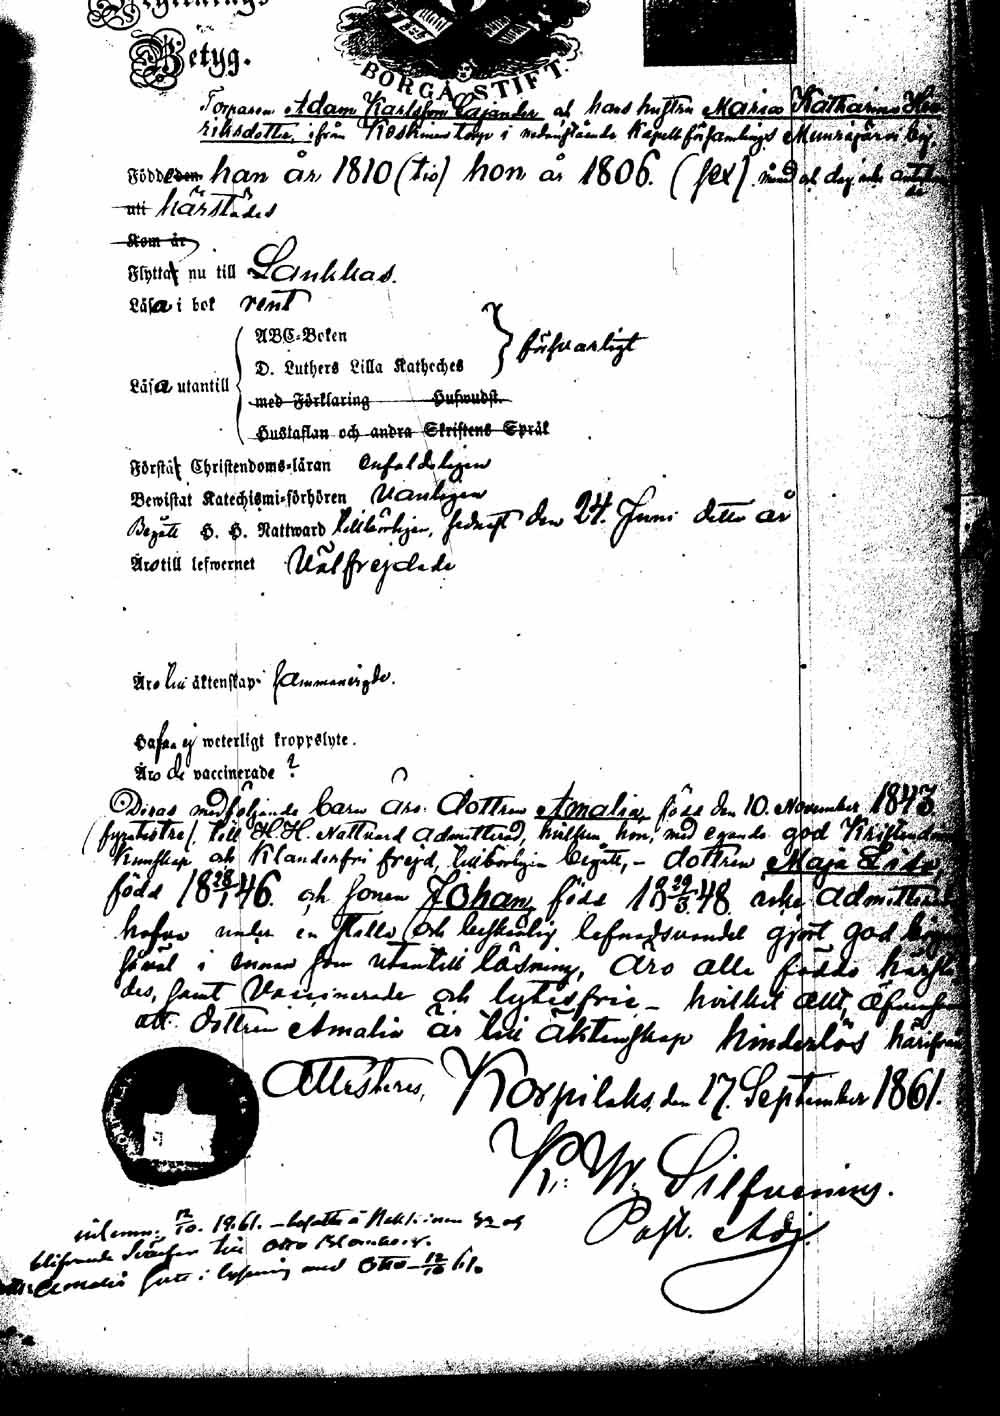 Betyg.
BORGÅ STIFT.
Torparen Adam Karlsson Cajander och hans hustru Maria Katharina Hen-
riksdotter, ifrån Koskinens torp i nedanstående Kapellförsamlings Munnajärvi by,
Födde den han år 1810 (tio) hon år 1806. (sex) månad och dag icke anteknade
uti härstädes
Kom år
Flyttar nu till Laukkas.
Läsa i bok rent
ABC-Boken
D. Luthers Lilla Katheches } försvarligt
Läsa utantill
med Förklaring Huswudst.
Hustaflan och andra Skriftens Språk
Förstår Christendoms-läran enfaldeligen
Bewistat Katechismi-förhören Vanligen
Begått H. H. Nattward tillbörligen, sednast den 24. Juni detta år
Äro till lefwernet Välfrejdade
Äro till äktenskap sammanvigde.
Hafva ej weterligt kroppslyte.
Äro de vaccinerade ?
Deras medföljande barn äro: dottren Amalia, född den 10. November 1843
(fyratiotre), till H.H. Nattvard admitterad, hvilken hon, med egande god Kristendoms
Kunskap och Klanderfri frejd, tillbörligen begått, – dottren Maja Lisa,
född 18 28/1 46. och sonen Johan, född 18 29/3 48 icke admitterade
hafva under en stilla och beskedlig lefnadsvandel gjort god
såväl i innan som utantill läsning, äro alle födde härstä-
des, samt Vaccinerade och lytesfrie – hvilket allt, äfvensom
att dottren Amalia är till äktenskap hinderlös härifrån
Attesteres, Korpilaks, den 17. September 1861.
K. W. Silfvenius.
Past. Adj.
inlemn. 12/10. 1861. –
till Otto Blomberg.
Amalia med Otto – 12/10 61.